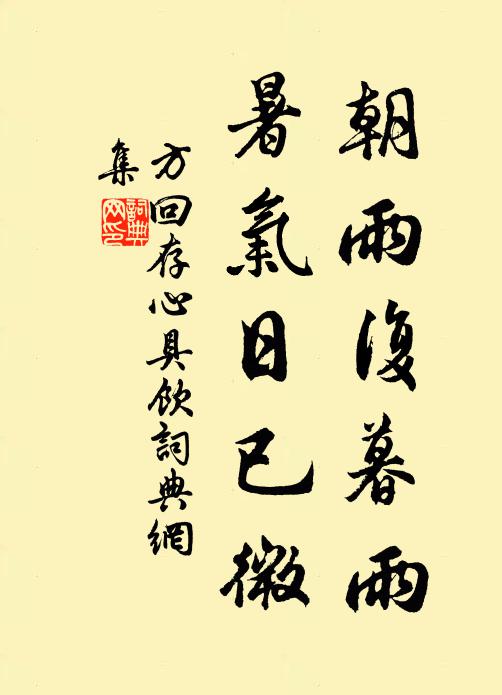 朝雨復暮雨
暑氣日已微
方回存心具飲詞典網
集
詞典網印